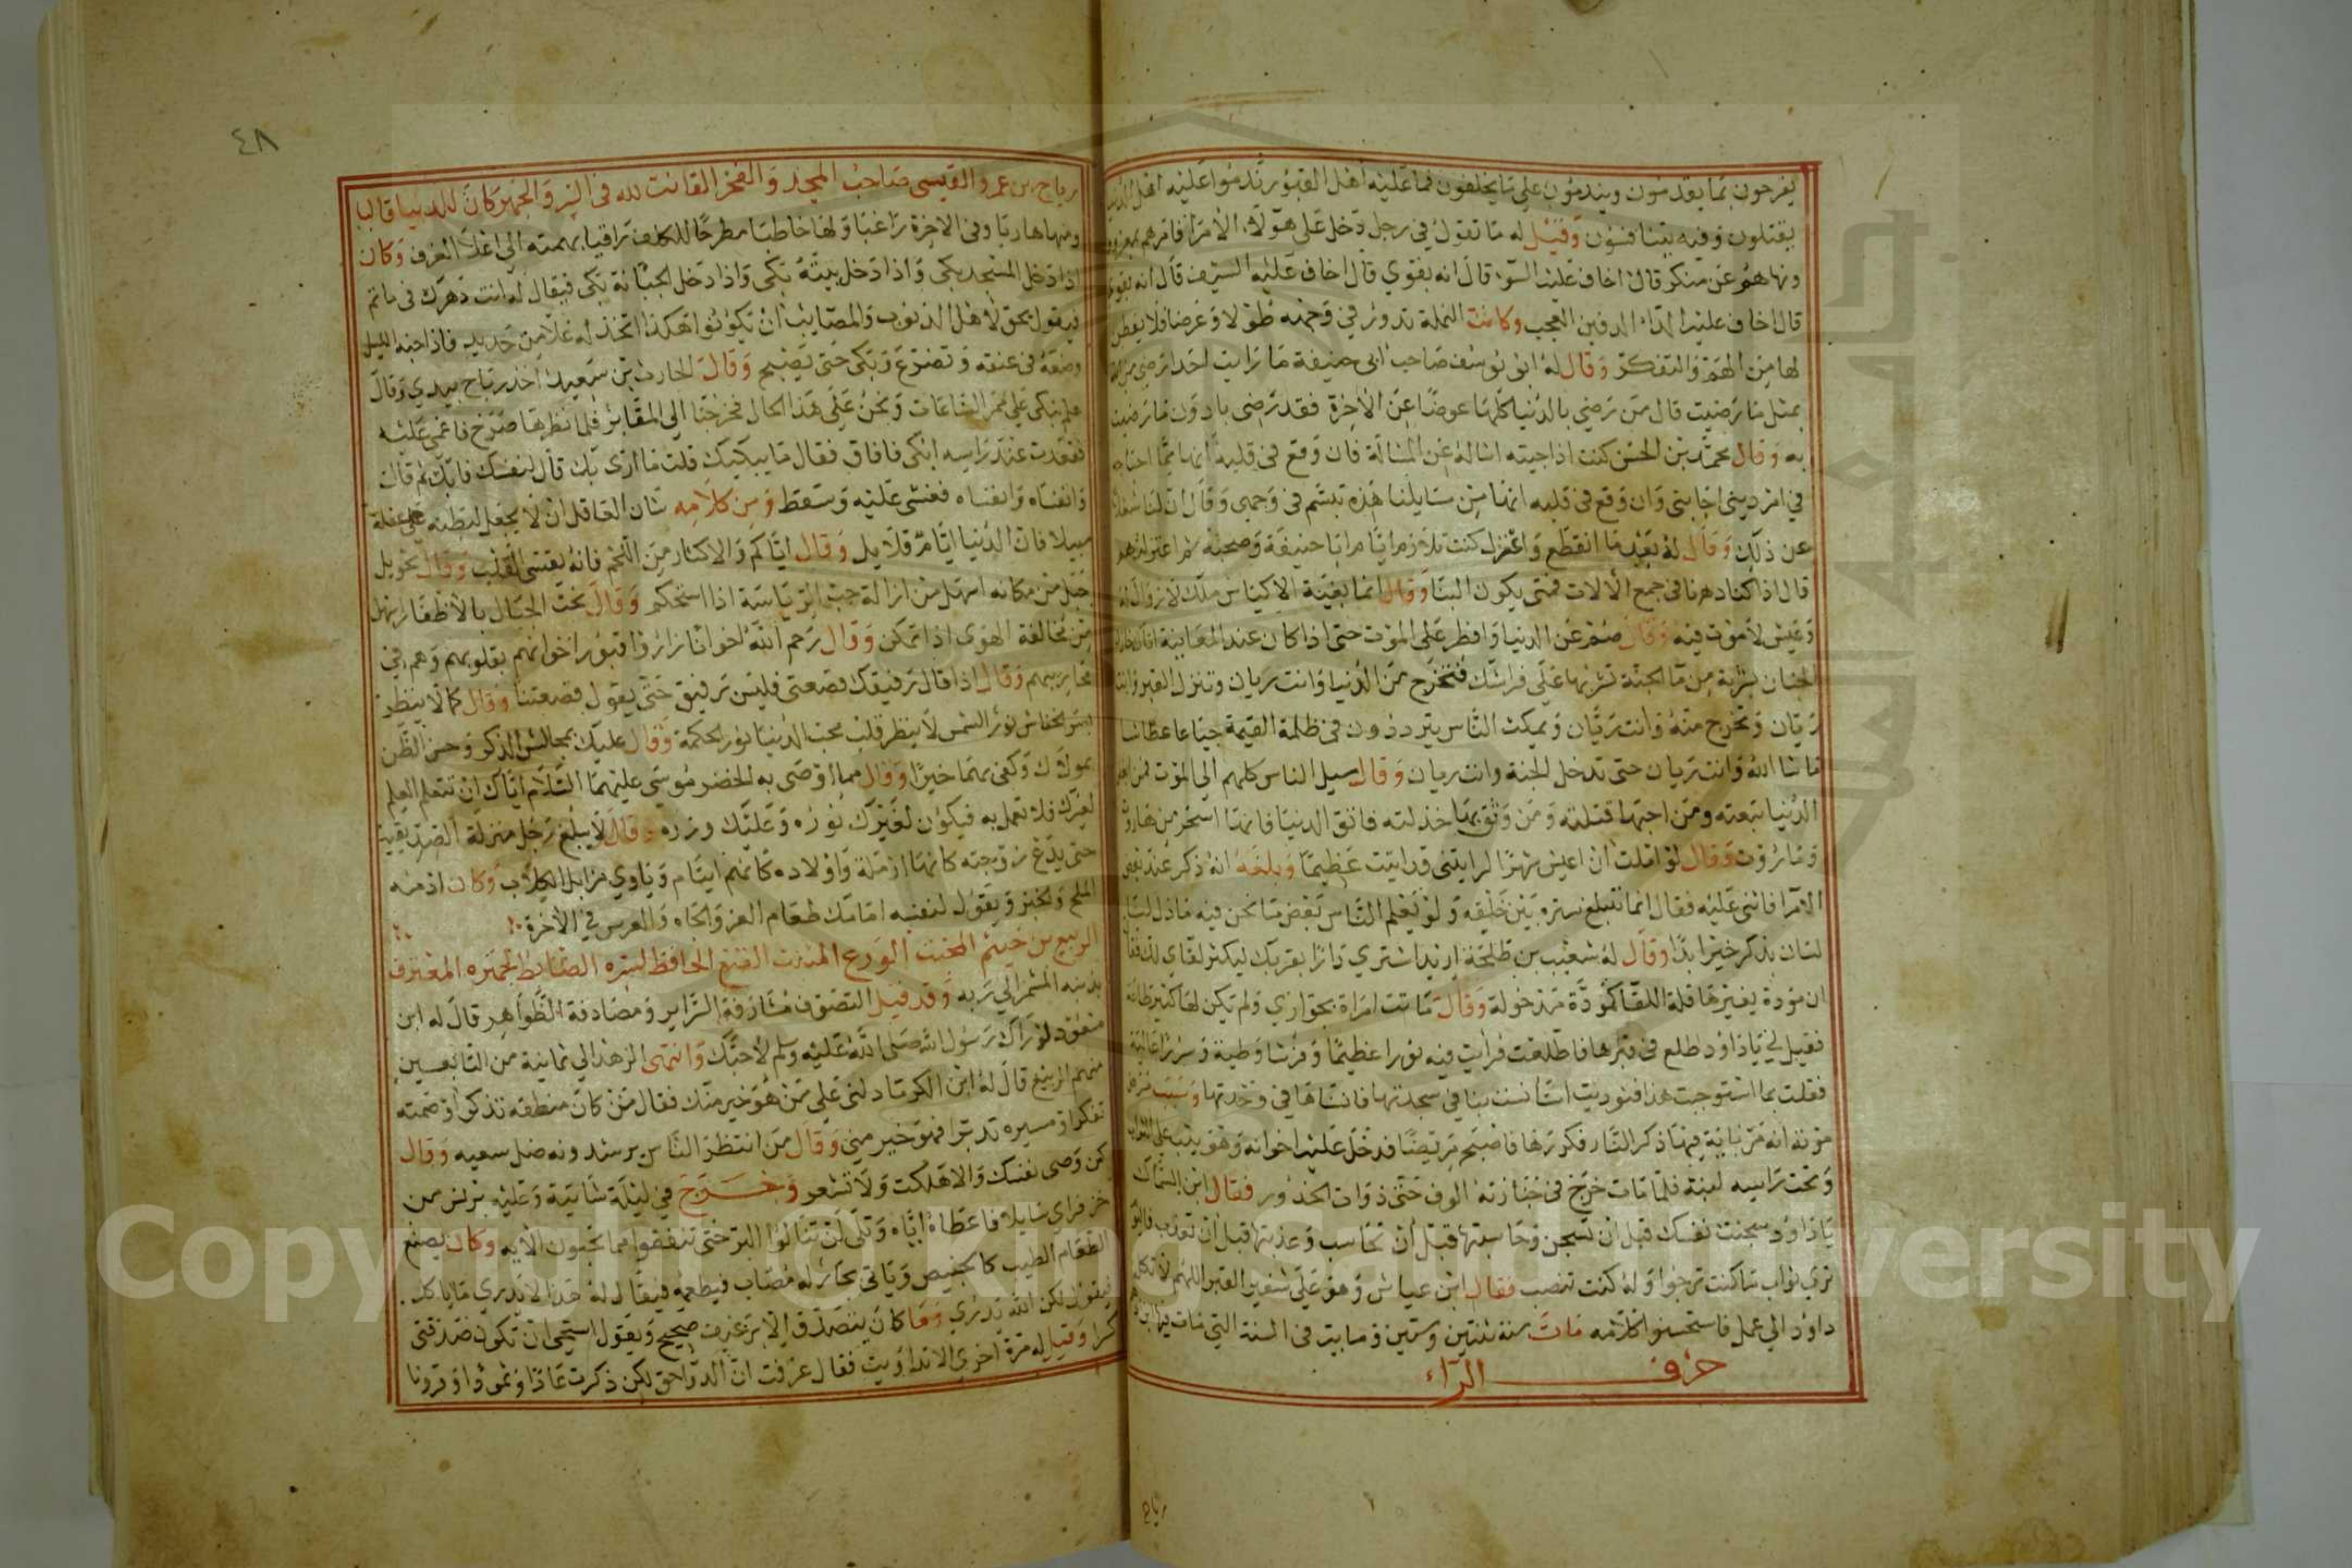 يفرحون بما يقدمون ويندمون على ما يخلفون فما عليه اهل القبور ندموا عليه اهل الدنيا
يقتلون وفيه يتنافسون وقيل له ما تقول في رجل دخل على هؤلاء الامرا فامرهم بمعروف
ونهاهم عن منكر قال اخاف عليه السوط قال انه يقوي قال اخاف عليه السيف قال انه يقوي
قال اخاف عليه الداء الدفين العجب وكانت النملة تدور في وجهه طولا وعرضا فلا يفطن
لها من الهم والتفكر وقال له ابو يوسف صاحب ابي حنيفة ما رايت احدا رضي من الدنيا
بمثل ما رضيت قال من رضي بالدنيا كلها عوضا عن الاخرة فقد رضي بادون مما رضيت
به وقال محمد بن الحسن كنت اذا جيته اساله عن المسالة فان وقع في قلبه انها مما احتاجه
في امر ديني اجابني وان وقع في قلبه انها من مسايلنا هذه تبسم في وجهي وقال ان لنا شغلا
عن ذلك وقال له بعد ما انقطع واعتزل كنت تلازم اياما ابا حنيفة وصحبه ثم اعتزلتهم
قال اذا كنا دهرنا في جمع الالات فمتى يكون البنا وقال انما بغية الاكياس ملك لا زوال له
وعيش لا موت فيه وقال صم عن الدنيا وافطر على الموت حتى اذا كان عند المعاينة
الجنان بشربة من ما الجنة تشربها على فراشك فتخرج من الدنيا وانت ريان وتنزل القبر وانت
ريان وتخرج منه وانت ريان ويمكث الناس يترددون في ظلمة القيمة جياعا عطاشا
ما شا الله وانت ريان حتى تدخل الجنة وانت ريان وقال سبيل الناس كلهم الى الموت
الدنيا تبعته ومن احبها قتلته ومن وثق بها خذلته فاتق الدنيا فانها اسحر من هاروت
وماروت وقال لو املت ان اعيش شهرا لرايتني قد اتيت عظيما وبلغه انه ذكر عند بعض
الامرا فاثنى عليه فقال انما نتبلغ بستره بين خليقه ولو يعلم الناس بعض ما نحن فيه ما ذل لنا
لسان بذكر خير ابدا وقال له شعيب بن طلحة اريد اشتري دارا بقربك ليكثر لقاي لك فقال
ان مودة يغيرها قلة اللقا لمودة مدخولة وقال ماتت امراة بجواري ولم تكن لها كثير طاعة
فقيل لي يا داود اطلع في قبرها فاطلعت فرايت فيه نورا عظيما وفرشا وطية وسررا عالية
فقلت بما استوجبت هذا فنوديت استانست بنا في سجدتها فانسناها في وحدتها وسبب مرض
موته انه مر باية فيها ذكر النار فكررها فاصبح مريضا فدخل عليه اخوانه وهو يتب على التراب
وتحت راسه لبنة فلما مات خرج في جنازته الوف حتى ذوات الخدور فقال ابن السماك
يا داود سجنت نفسك قبل ان تسجن وحاسبتها قبل ان تحاسب وعذبتها قبل ان تعذب فاليوم
ترى ثواب ما كنت ترجوا وله كنت تنصب فقال ابن عياش وهو على شفير القبر اللهم لا تكل
داود الى عمل فاستحسنوا كلامه مات سنة ثنتين وستين وماية في السنة التي مات فيها
حرف الراء
رباح
٤٨
رباح بن عمرو القيسي صاحب المجد والفخر القانت لله في السر والجهر كان للدنيا قاليا
ومنها هاربا وفي الاخرة راغبا ولها خاطبا مطرحا للكلف راقيا بهمته الى اعلا الغرف وكان
اذا دخل المسجد بكى واذا دخل بيته بكى واذا دخل الجبانة بكى فيقال له انت دهرك في ماتم
فيقول يحق لاهل الذنوب والمصايب ان يكونوا هكذا اتخذ له غلا من حديد فاذا جنه الليل
وضعه في عنقه وتضرع وبكى حتى يصبح وقال الحارث بن سعيد اخذ رباح بيدي وقال
هلم نبكي على ممر الساعات ونحن على هذا الحال فخرجنا الى المقابر فلما نظرها صرخ فاغمي عليه
فقعدت عند راسه ابكي فافاق فقال ما يبكيك قلت ما ارى بك قال لنفسك فابك ثم قال
وانفساه وانفساه فغشي عليه وسقط ومن كلامه شان العاقل ان لا يجعل لبطنه على عقله
سبيلا فان الدنيا ايام قلايل وقال اياكم والاكثار من اللحم فانه يقسي القلب وقال تحويل
جبل من مكانه اسهل من ازالة حب الرياسة اذا استحكم وقال نحت الجبال بالاظفار اسهل
من مخالفة الهوى اذا تمكن وقال رحم الله اخوانا زاروا قبور اخوانهم بقلوبهم وهم في
محاريبهم وقال اذا قال رفيقك قصعتي فليس رفيق حتى يقول قصعتنا وقال كما لا ينظر
بصر الخفاش نور الشمس لا ينظر قلب محب الدنيا نور الحكمة وقال عليك بمجالس الذكر وحسن الظن
بمولاك وكفى بهما خيرا وقال مما اوصى به الخضر موسى عليهما السلام اياك ان تتعلم العلم
لغيرك فلا تعمل به فيكون لغيرك نوره وعليك وزره وقال لا يبلغ رجل منزلة الصديقية
حتى يدع زوجته كانها ارملة واولاده كانهم ايتام وياوي مزابل الكلاب وكان ادمنه
الملح والخبز ويقول لنفسه امامك طعام العز والجاه والعرس في الاخرة
الربيع بن خيثم المخبت الورع المتثبت القنع الحافظ لسره الضابط لجهره المعترف
بذنبه المشمر الى ربه وقد قيل التصوف مشارفة السراير ومصادفة الظواهر قال له ابن
مسعود لو راك رسول الله صلى الله عليه وسلم لاحبك وانتهى الزهد الى ثمانية من التابعين
منهم الربيع قال له ابن الكوا دلني على من هو خير منك فقال من كان منطقه تذكرا وصمته
تفكرا ومسيره تدبرا فهو خير مني وقال من انتظر الناس يرشدونه ضل سعيه وقال
كن وصى نفسك والا هلكت ولا تشعر وخرج في ليلة شاتية وعليه برنس من
خز فراى سايلا فاعطاه اياه وتلى لن تنالوا البر حتى تنفقوا مما تحبون الايه وكان يصنع
الطعام الطيب كالخبيص وياتي بجار له مصاب فيطعمه فيقال له هذا لا يدري ما ياكل
فيقول لكن الله يدري وما كان يتصدق الا برغيف صحيح ويقول استحي ان تكون صدقتي
كسرا وقيل له مرة اخرى الا تداويت فقال عرفت ان الدوا حق لكن ذكرت عادا وثمودا وقرونا
Copyright © King Saud University